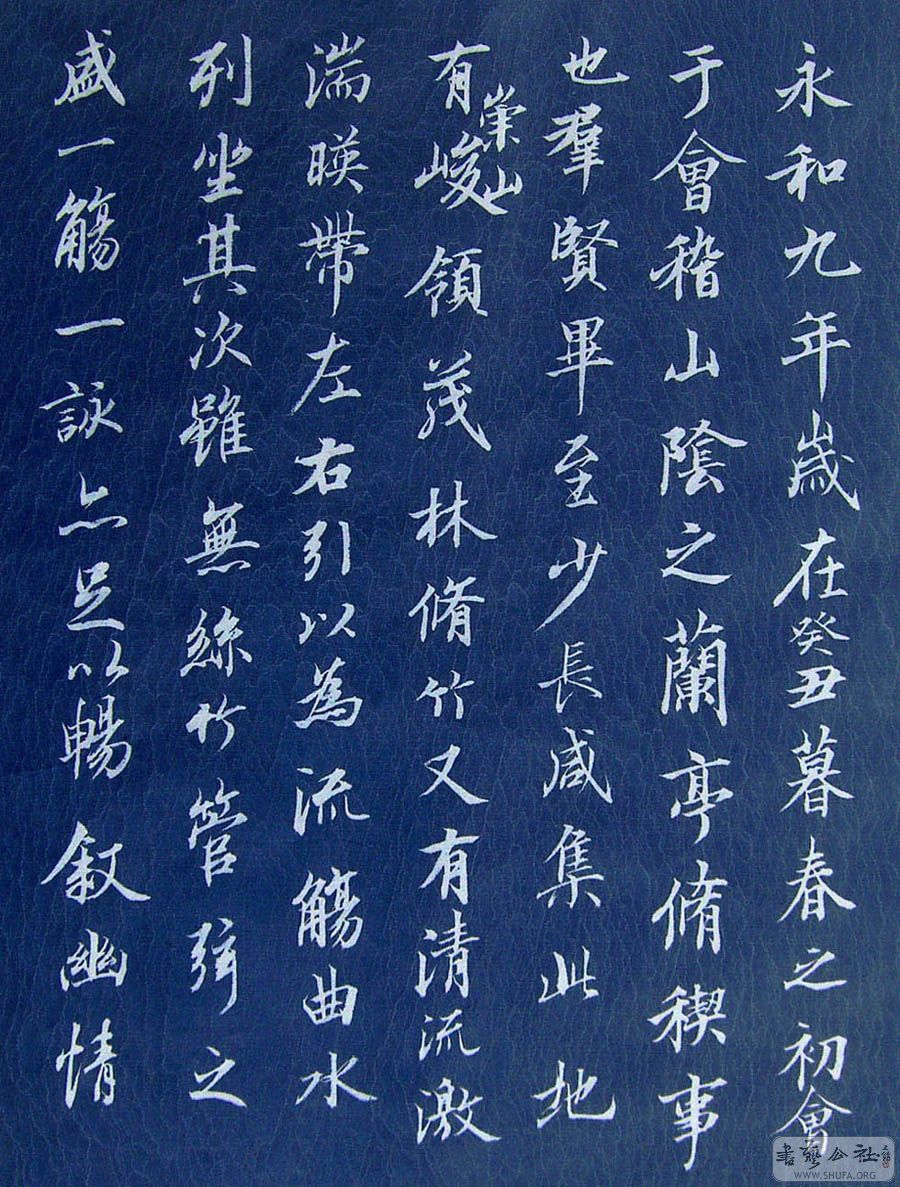 永和九年歲在癸丑暮春之初會
于會稽山陰之蘭亭脩稧事
也羣賢畢至少長咸集此地
有崇山峻領茂林脩竹又有清流激
湍暎帶左右引以為流觴曲水
列坐其次雖無絲竹管弦之
盛一觴一詠亦足以暢敘幽情
書藝公社
WWW.SHUFA.ORG